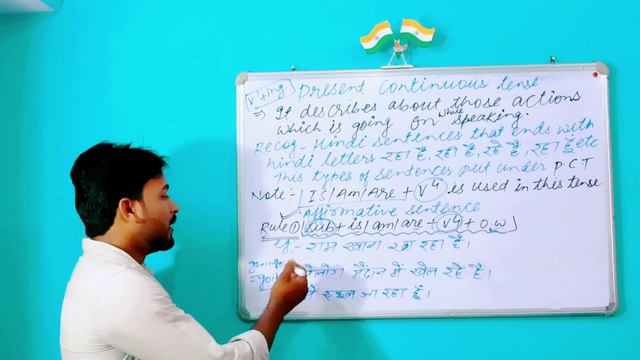 V⁴+ing Present Continuous tense
⇒ It describes about those actions
which is going on while speaking.
Recog - Hindi sentences that ends with
hindi letters रहा है, रही है, रहे है, रहा हूँ etc
This types of sentences put under P.C.T
Note:- Is/Am/Are + V⁴ is used in this tense
Affirmative sentence
Rule① Sub + is/am/are + V⁴ + O.W
राम खाना खा रहा है।
मैदान में खेल रहे है।
स्कूल जा रहा हूँ।